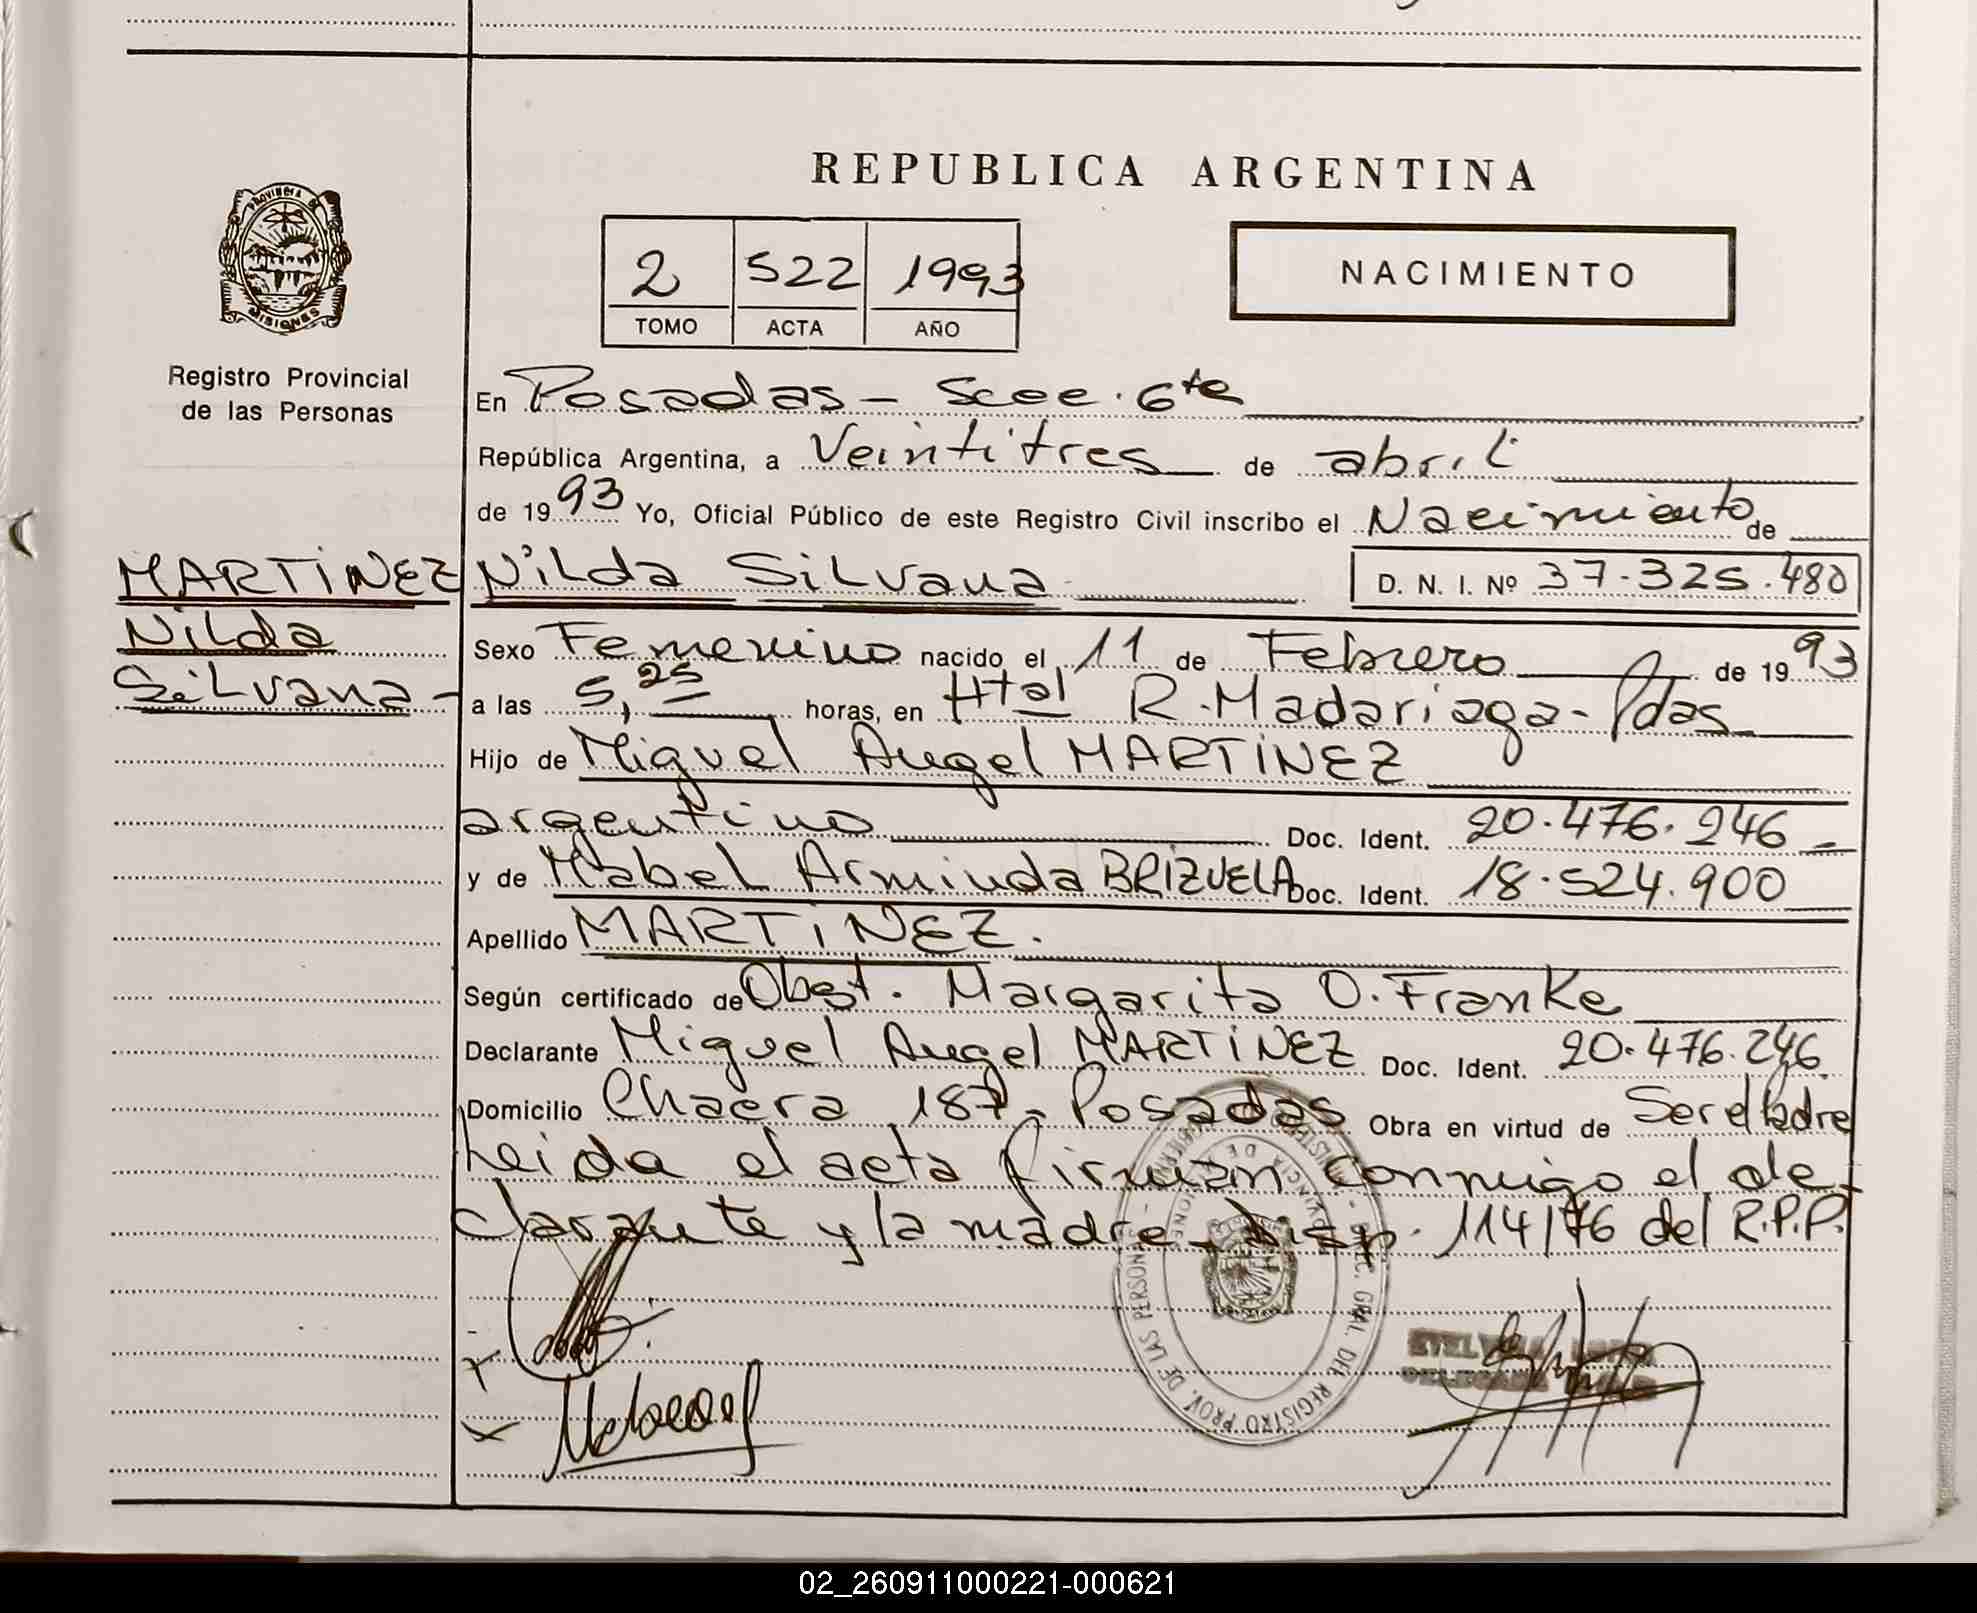 REPUBLICA ARGENTINA
PROVINCIA DE
MISIONES
Registro Provincial
de las Personas
2 522 1993
TOMO ACTA AÑO
NACIMIENTO
En Posadas - Secc. 6ta
República Argentina, a Veintitres de abril
de 1993 Yo, Oficial Público de este Registro Civil inscribo el Nacimiento de
MARTINEZ
Nilda
Silvana -
Nilda Silvana D. N. I. Nº 37.325.480
Sexo Femenino nacido el 11 de Febrero de 1993
a las 5,25 horas, en Htal R. Madariaga - Pdas
Hijo de Miguel Angel MARTINEZ
argentino Doc. Ident. 20.476.246
y de Mabel Arminda BRIZUELA Doc. Ident. 18.524.900
Apellido MARTINEZ.
Según certificado de Obst. Margarita O. Franke
Declarante Miguel Angel MARTINEZ Doc. Ident. 20.476.246
Domicilio Chacra 187 - Posadas Obra en virtud de Ser el Padre
Leida el acta firman conmigo el de-
clarante y la madre - Disp. 114/76 del R.P.P.
DEL REGISTRO PROV. DE LAS PERSONAS
02_260911000221-000621